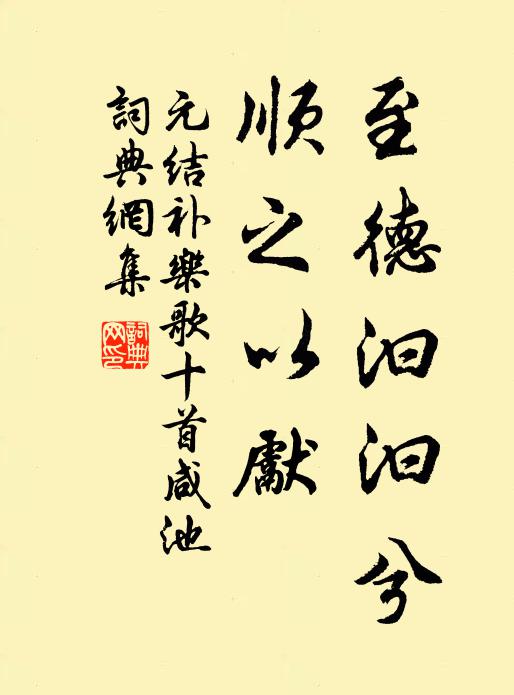 至德汩汩兮
順之以獻
元结补樂歌十首咸池
詞典網集
詞典網印